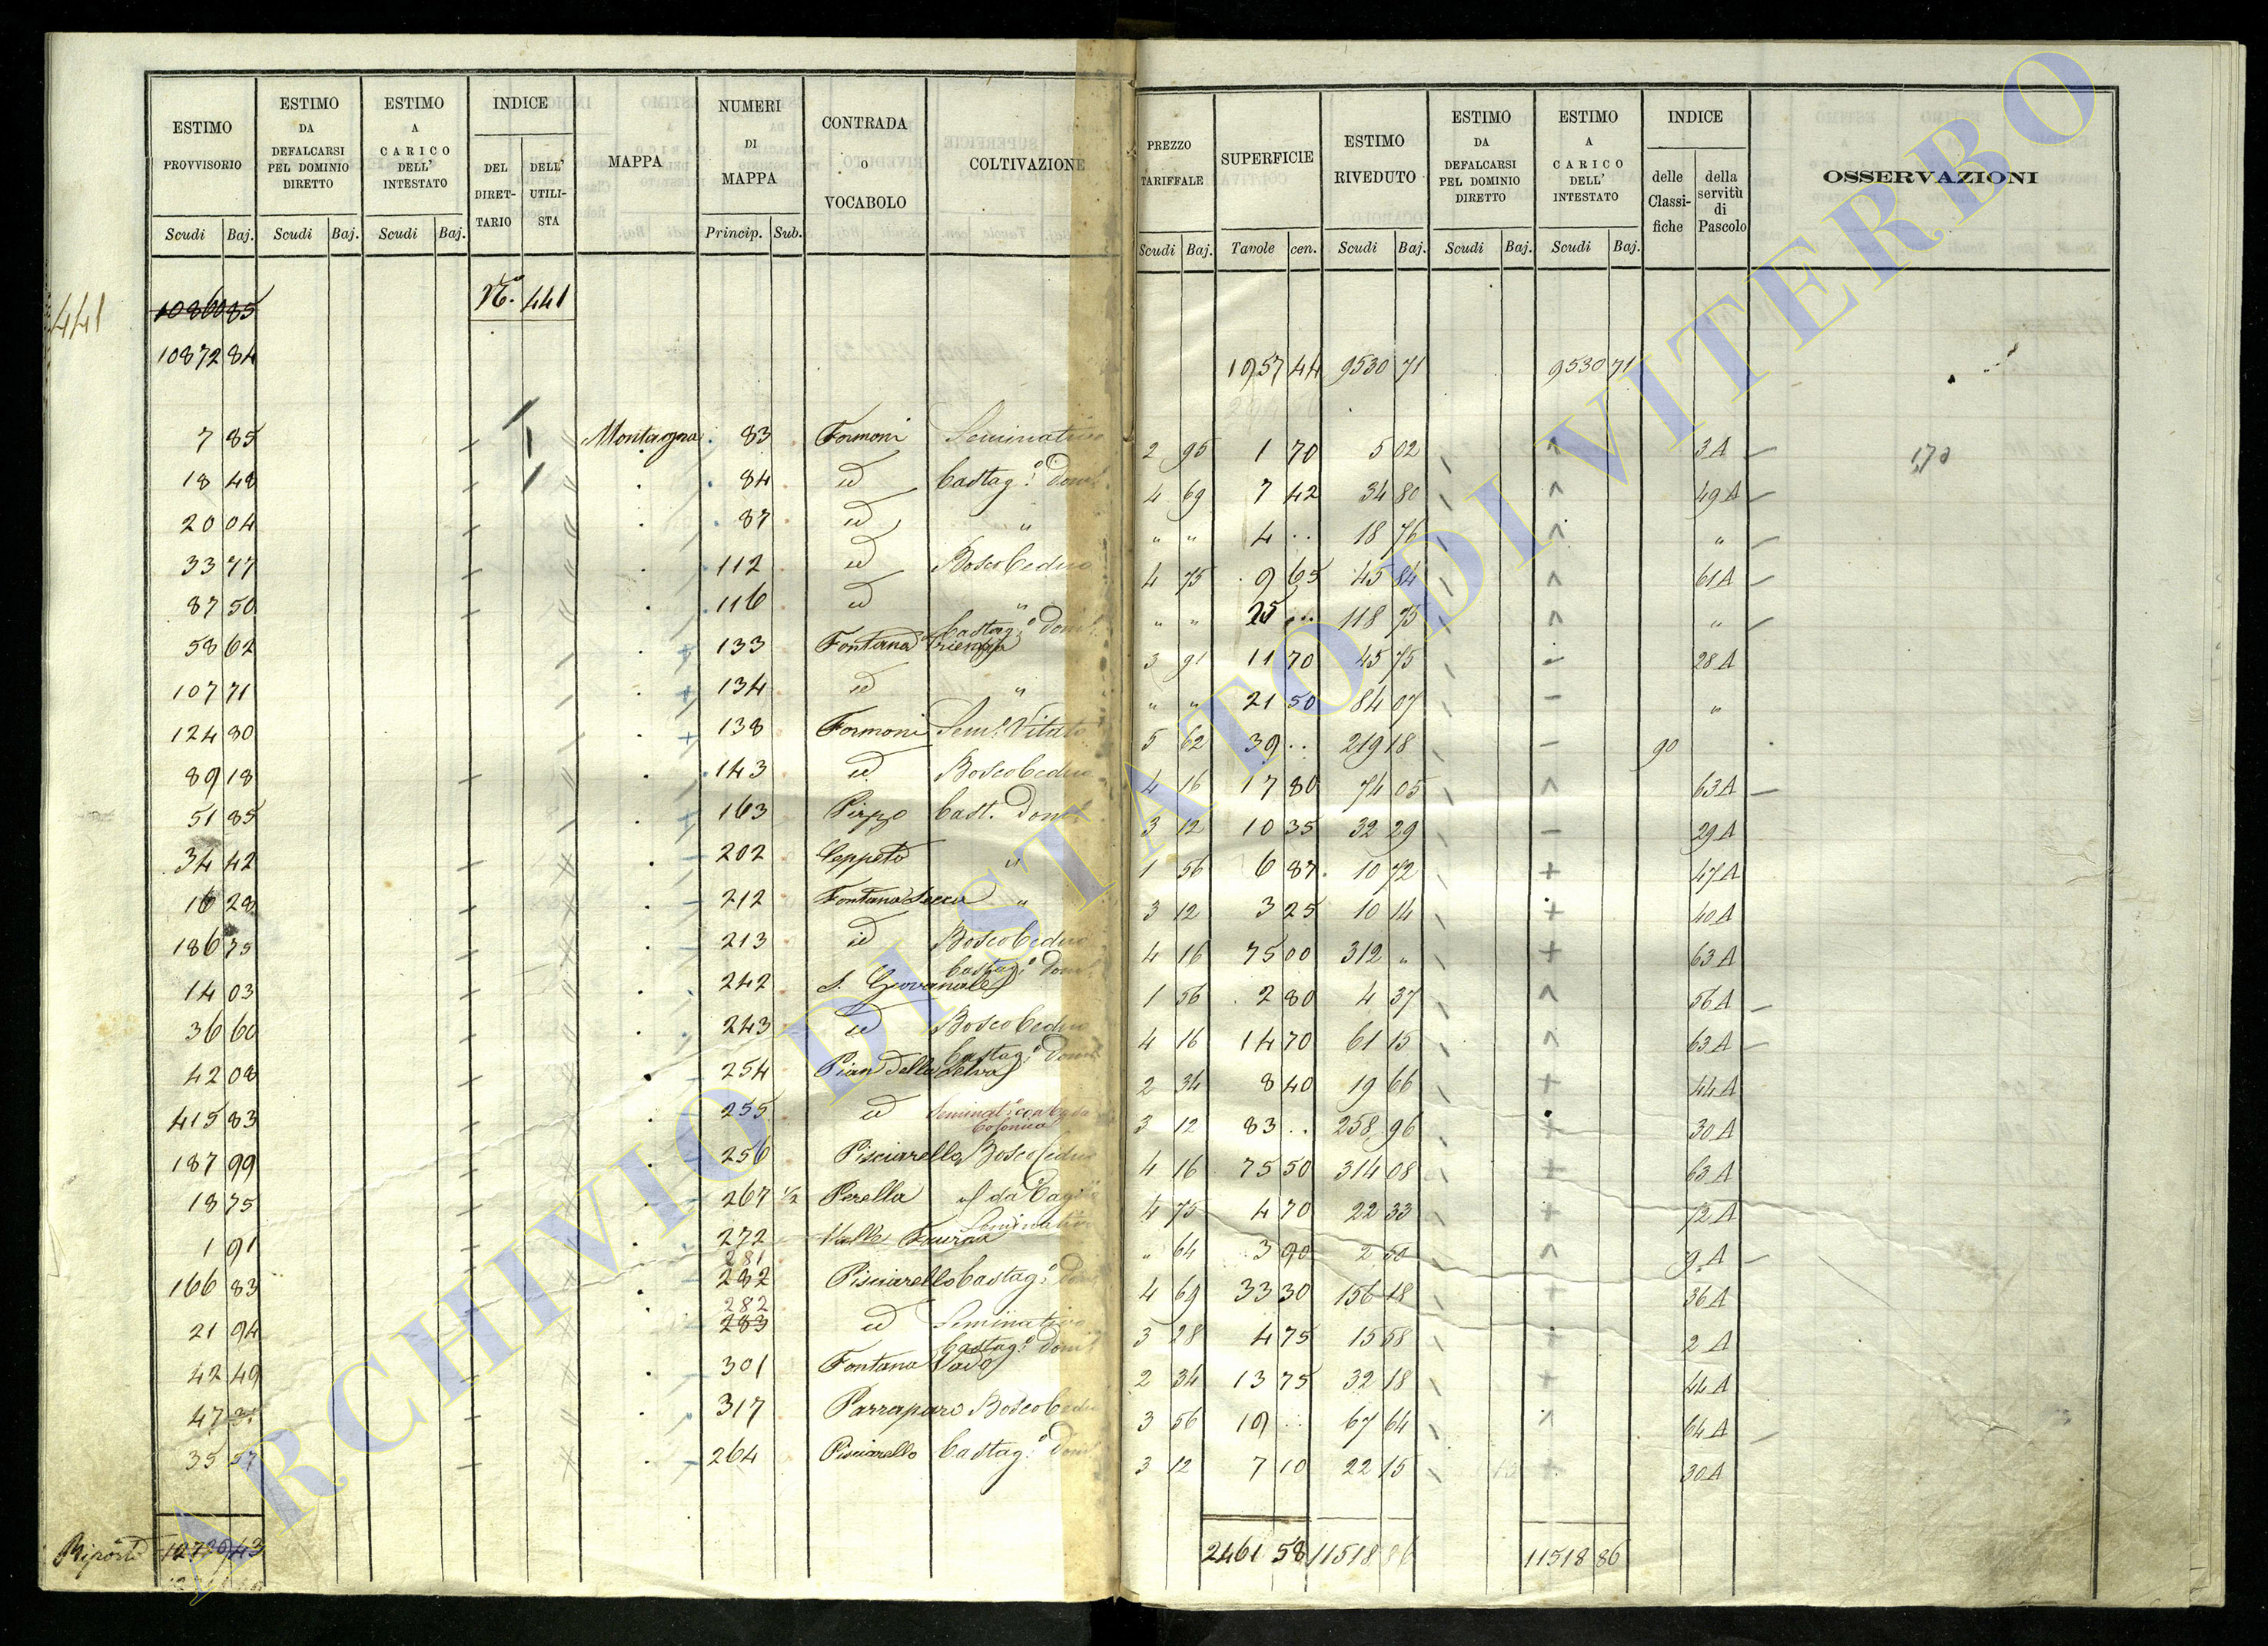 ESTIMO PROVVISORIO | ESTIMO DA DEFALCARSI PEL DOMINIO DIRETTO | ESTIMO A CARICO DELL' INTESTATO | INDICE | MAPPA | NUMERI DI MAPPA | CONTRADA O VOCABOLO | COLTIVAZIONE | PREZZO TARIFFALE | SUPERFICIE | ESTIMO RIVEDUTO | ESTIMO DA DEFALCARSI PEL DOMINIO DIRETTO | ESTIMO A CARICO DELL' INTESTATO | INDICE | OSSERVAZIONI
DEL DIRETTARIO | DELL' UTILISTA | delle Classifiche | della servitù di Pascolo
Scudi | Baj. | Scudi | Baj. | Scudi | Baj. | Princip. | Sub. | Scudi | Baj. | Tavole | cen. | Scudi | Baj. | Scudi | Baj. | Scudi | Baj.
441 | 10860 85 | No. 441
10872 84 | 1957 44 | 9530 71 | 9530 71
7 85 | Montagna | 83 | Formoni | Seminativo | 2 95 | 1 70 | 5 02 | 3 A | 1,70
18 48 | 84 | id | Castag.o Dom | 4 69 | 7 42 | 34 80 | 49 A
20 04 | 87 | id | " | " " | 4 .. | 18 76 | "
33 77 | 112 | id | Bosco Ceduo | 4 75 | 9 65 | 45 84 | 61 A
87 50 | 116 | id | " | " " | 25 ... | 118 75 | "
58 62 | 133 | Fontana | Castag.o Dom. | 3 91 | 11 70 | 45 75 | 28 A
107 71 | 134 | id | " | " " | 21 50 | 84 07 | "
124 80 | 138 | Formoni | Sem.o Vitato | 5 62 | 39 .. | 219 18 | 90
89 18 | 143 | id | Bosco Ceduo | 4 16 | 17 80 | 74 05 | 63 A
51 85 | 163 | Pizzo | Cast. Dom | 3 12 | 10 35 | 32 29 | 29 A
34 42 | 202 | Ceppeto | " | 1 56 | 6 87 | 10 72 | 47 A
16 28 | 212 | Fontana Secca | " | 3 12 | 3 25 | 10 14 | 40 A
186 75 | 213 | id | Bosco Ceduo | 4 16 | 75 00 | 312 " | 63 A
14 03 | 242 | S. Giovenale | Castag.o Dom. | 1 56 | 2 80 | 4 37 | 56 A
36 60 | 243 | id | Bosco Ceduo | 4 16 | 14 70 | 61 15 | 63 A
42 08 | 254 | Pian della Selva | Castag.o Dom | 2 34 | 8 40 | 19 66 | 44 A
415 83 | 255 | id | Seminat.o con Casa Colonica | 3 12 | 83 .. | 258 96 | 30 A
187 99 | 256 | Pisciarello | Bosco Ceduo | 4 16 | 75 50 | 314 08 | 63 A
18 75 | 267 1/2 | Perella | 4 75 | 4 70 | 22 33 | 72 A
1 91 | 272 | Valle | Seminativo | " 64 | 3 90 | 2 50 | 9 A
166 83 | 281 282 | Pisciarello | Castag.o Dom | 4 69 | 33 30 | 156 18 | 36 A
21 94 | 282 283 | id | Seminativo | 3 28 | 4 75 | 15 58 | 2 A
42 49 | 301 | Fontana | Castag.o Dom | 2 34 | 13 75 | 32 18 | 44 A
47 | 317 | Bosco Ceduo | 3 56 | 19 .. | 67 64 | 64 A
35 57 | 264 | Pisciarello | Castag.o Dom | 3 12 | 7 10 | 22 15 | 30 A
Riporto | 2461 58 | 11518 86 | 11518 86
ARCHIVIO DI STATO DI VITERBO